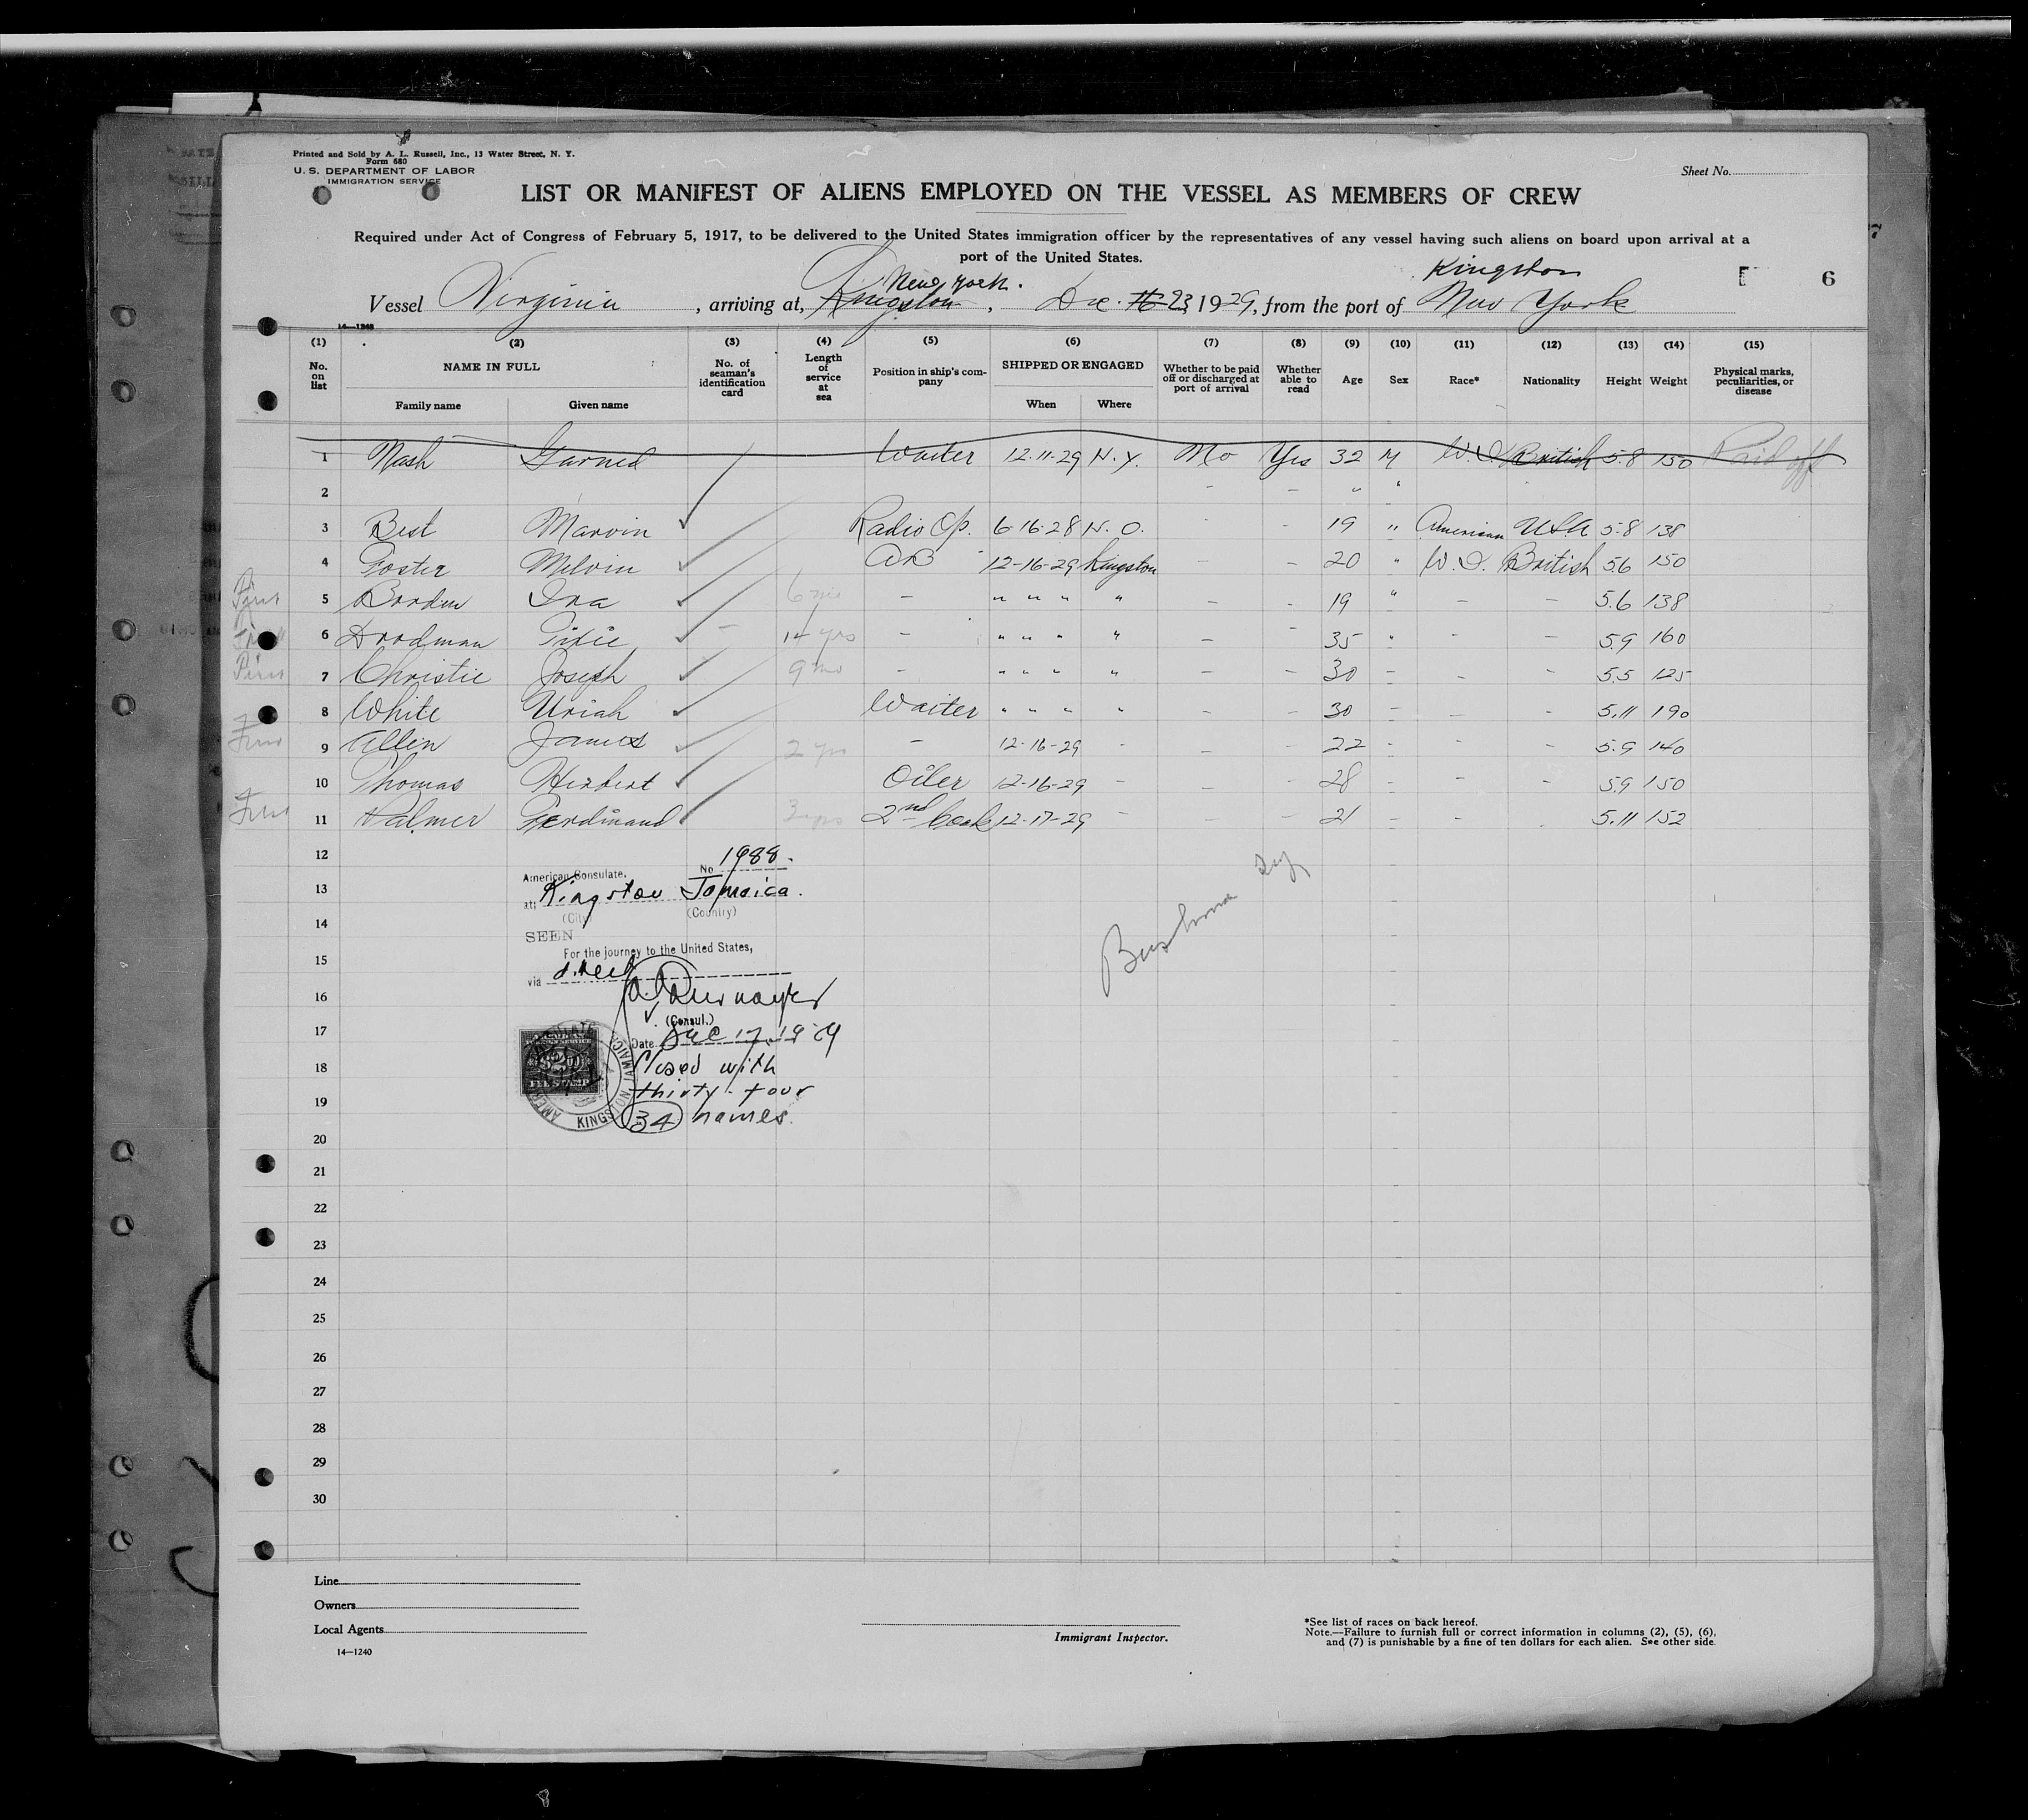 Printed and Sold by A. L. Russell, Inc., 13 Water Street, N. Y.
Form 680
U. S. DEPARTMENT OF LABOR
IMMIGRATION SERVICE
Sheet No.
LIST OR MANIFEST OF ALIENS EMPLOYED ON THE VESSEL AS MEMBERS OF CREW
Required under Act of Congress of February 5, 1917, to be delivered to the United States immigration officer by the representatives of any vessel having such aliens on board upon arrival at a
port of the United States.
New York. Kingston
6
Vessel Virginia, arriving at, Kingston, Dec. 16 23 1929, from the port of New York
14—1240
(1) (2) (3) (4) (5) (6) (7) (8) (9) (10) (11) (12) (13) (14) (15)
No. on list NAME IN FULL Family name Given name No. of seaman's identification card Length of service at sea Position in ship's company SHIPPED OR ENGAGED When Where Whether to be paid off or discharged at port of arrival Whether able to read Age Sex Race* Nationality Height Weight Physical marks, peculiarities, or disease
1 Nash Garned Waiter 12-11-29 N.Y. No Yes 32 M W.I. British 5.8 150 Paid off
2 - - " "
3 Best Marvin Radio Op. 6-16-28 N.O. - - 19 " American USA 5-8 138
4 Foster Melvin AB 12-16-29 Kingston - - 20 " W.I. British 5.6 150
First 5 Borden Ira 6 mo - " " " " - - 19 " - - 5.6 138
6 Goodman Pixie - 14 yrs - " " " " - - 35 " - - 5.9 160
First 7 Christie Joseph 9 mo - " " " " - - 30 - - - 5.5 125
8 White Uriah Waiter " " " " - - 30 - - - 5.11 190
First 9 Allen James 2 yrs - 12-16-29 - - - 22 - - - 5.9 140
10 Thomas Herbert Oiler 12-16-29 - - - 28 - - - 5.9 150
First 11 Palmer Ferdinand 3 yrs 2nd Cook 12-17-29 - - - 21 - - - 5.11 152
12
13
14
15
16
17
18
19
20
21
22
23
24
25
26
27
28
29
30
No 1988.
American Consulate.
at; Kingston Jamaica.
(City) (Country)
SEEN
For the journey to the United States,
via direct
(Consul.)
Date Dec 17, 1929
Closed with
thirty-four
34 names.
KINGSTON JAMAICA
FEE STAMP
Line
Owners
Local Agents
14—1240
Immigrant Inspector.
*See list of races on back hereof.
Note.—Failure to furnish full or correct information in columns (2), (5), (6),
and (7) is punishable by a fine of ten dollars for each alien. See other side.